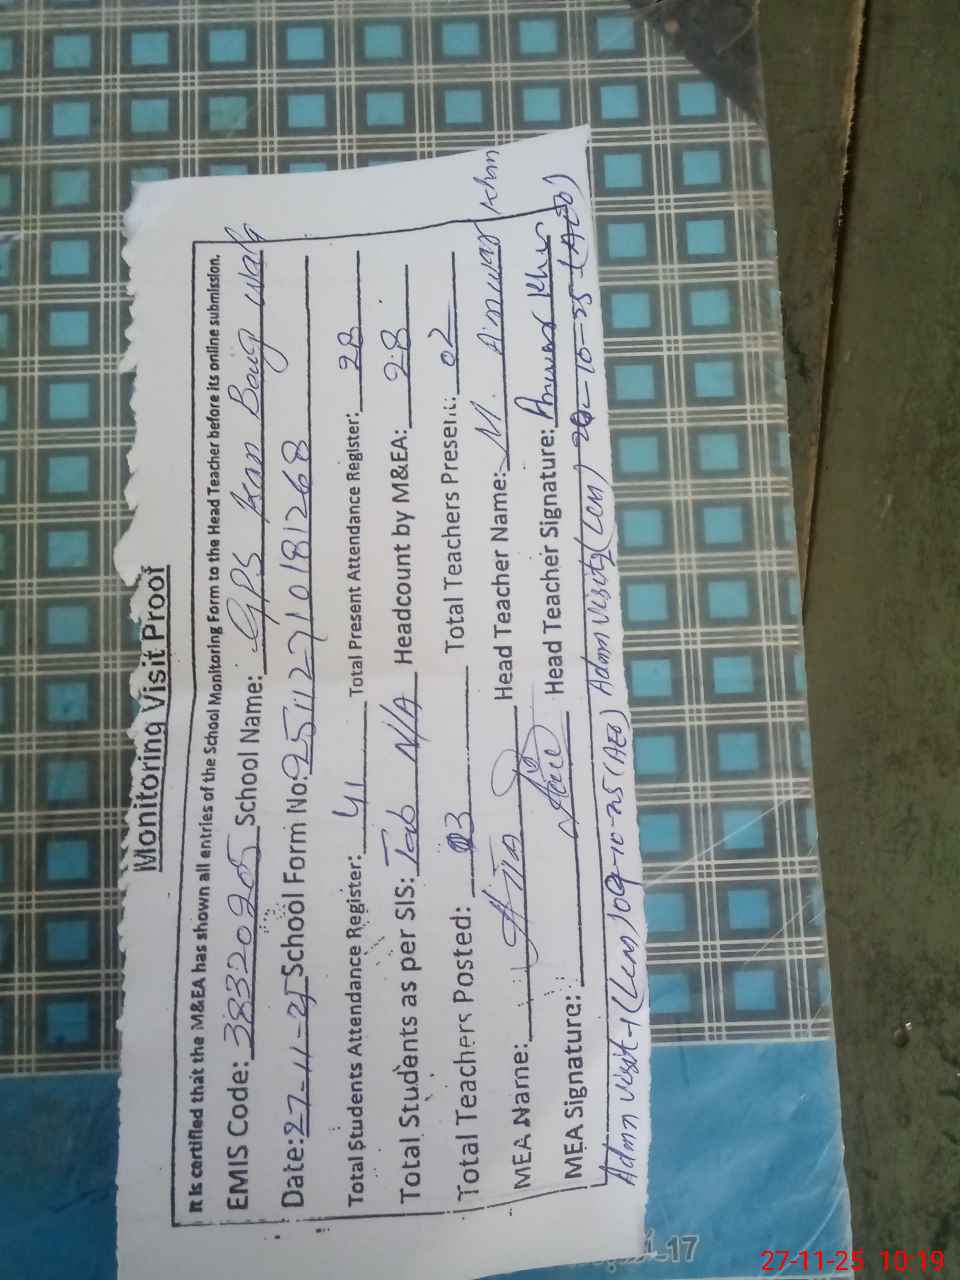 Monitoring Visit Proof
It is certified that the M&EA has shown all entries of the School Monitoring Form to the Head Teacher before its online submission.
EMIS Code: 38320205 School Name: GPS Kan Bang Wala
Date: 27-11-25 School Form No: 25112710181268
Total Students Attendance Register: 41 Total Present Attendance Register: 28
Total Students as per SIS: Tab N/A Headcount by M&EA: 28
Total Teachers Posted: 03 Total Teachers Present: 02
MEA Name: Head Teacher Name: M. Anwar Khan
MEA Signature: Head Teacher Signature: Anwar Khan
Admn visit-1 (LCM) 09-10-25 (AEO) Admn visit 2 (LCM) -10-25 (AEO)
-17
27-11-25 10:19